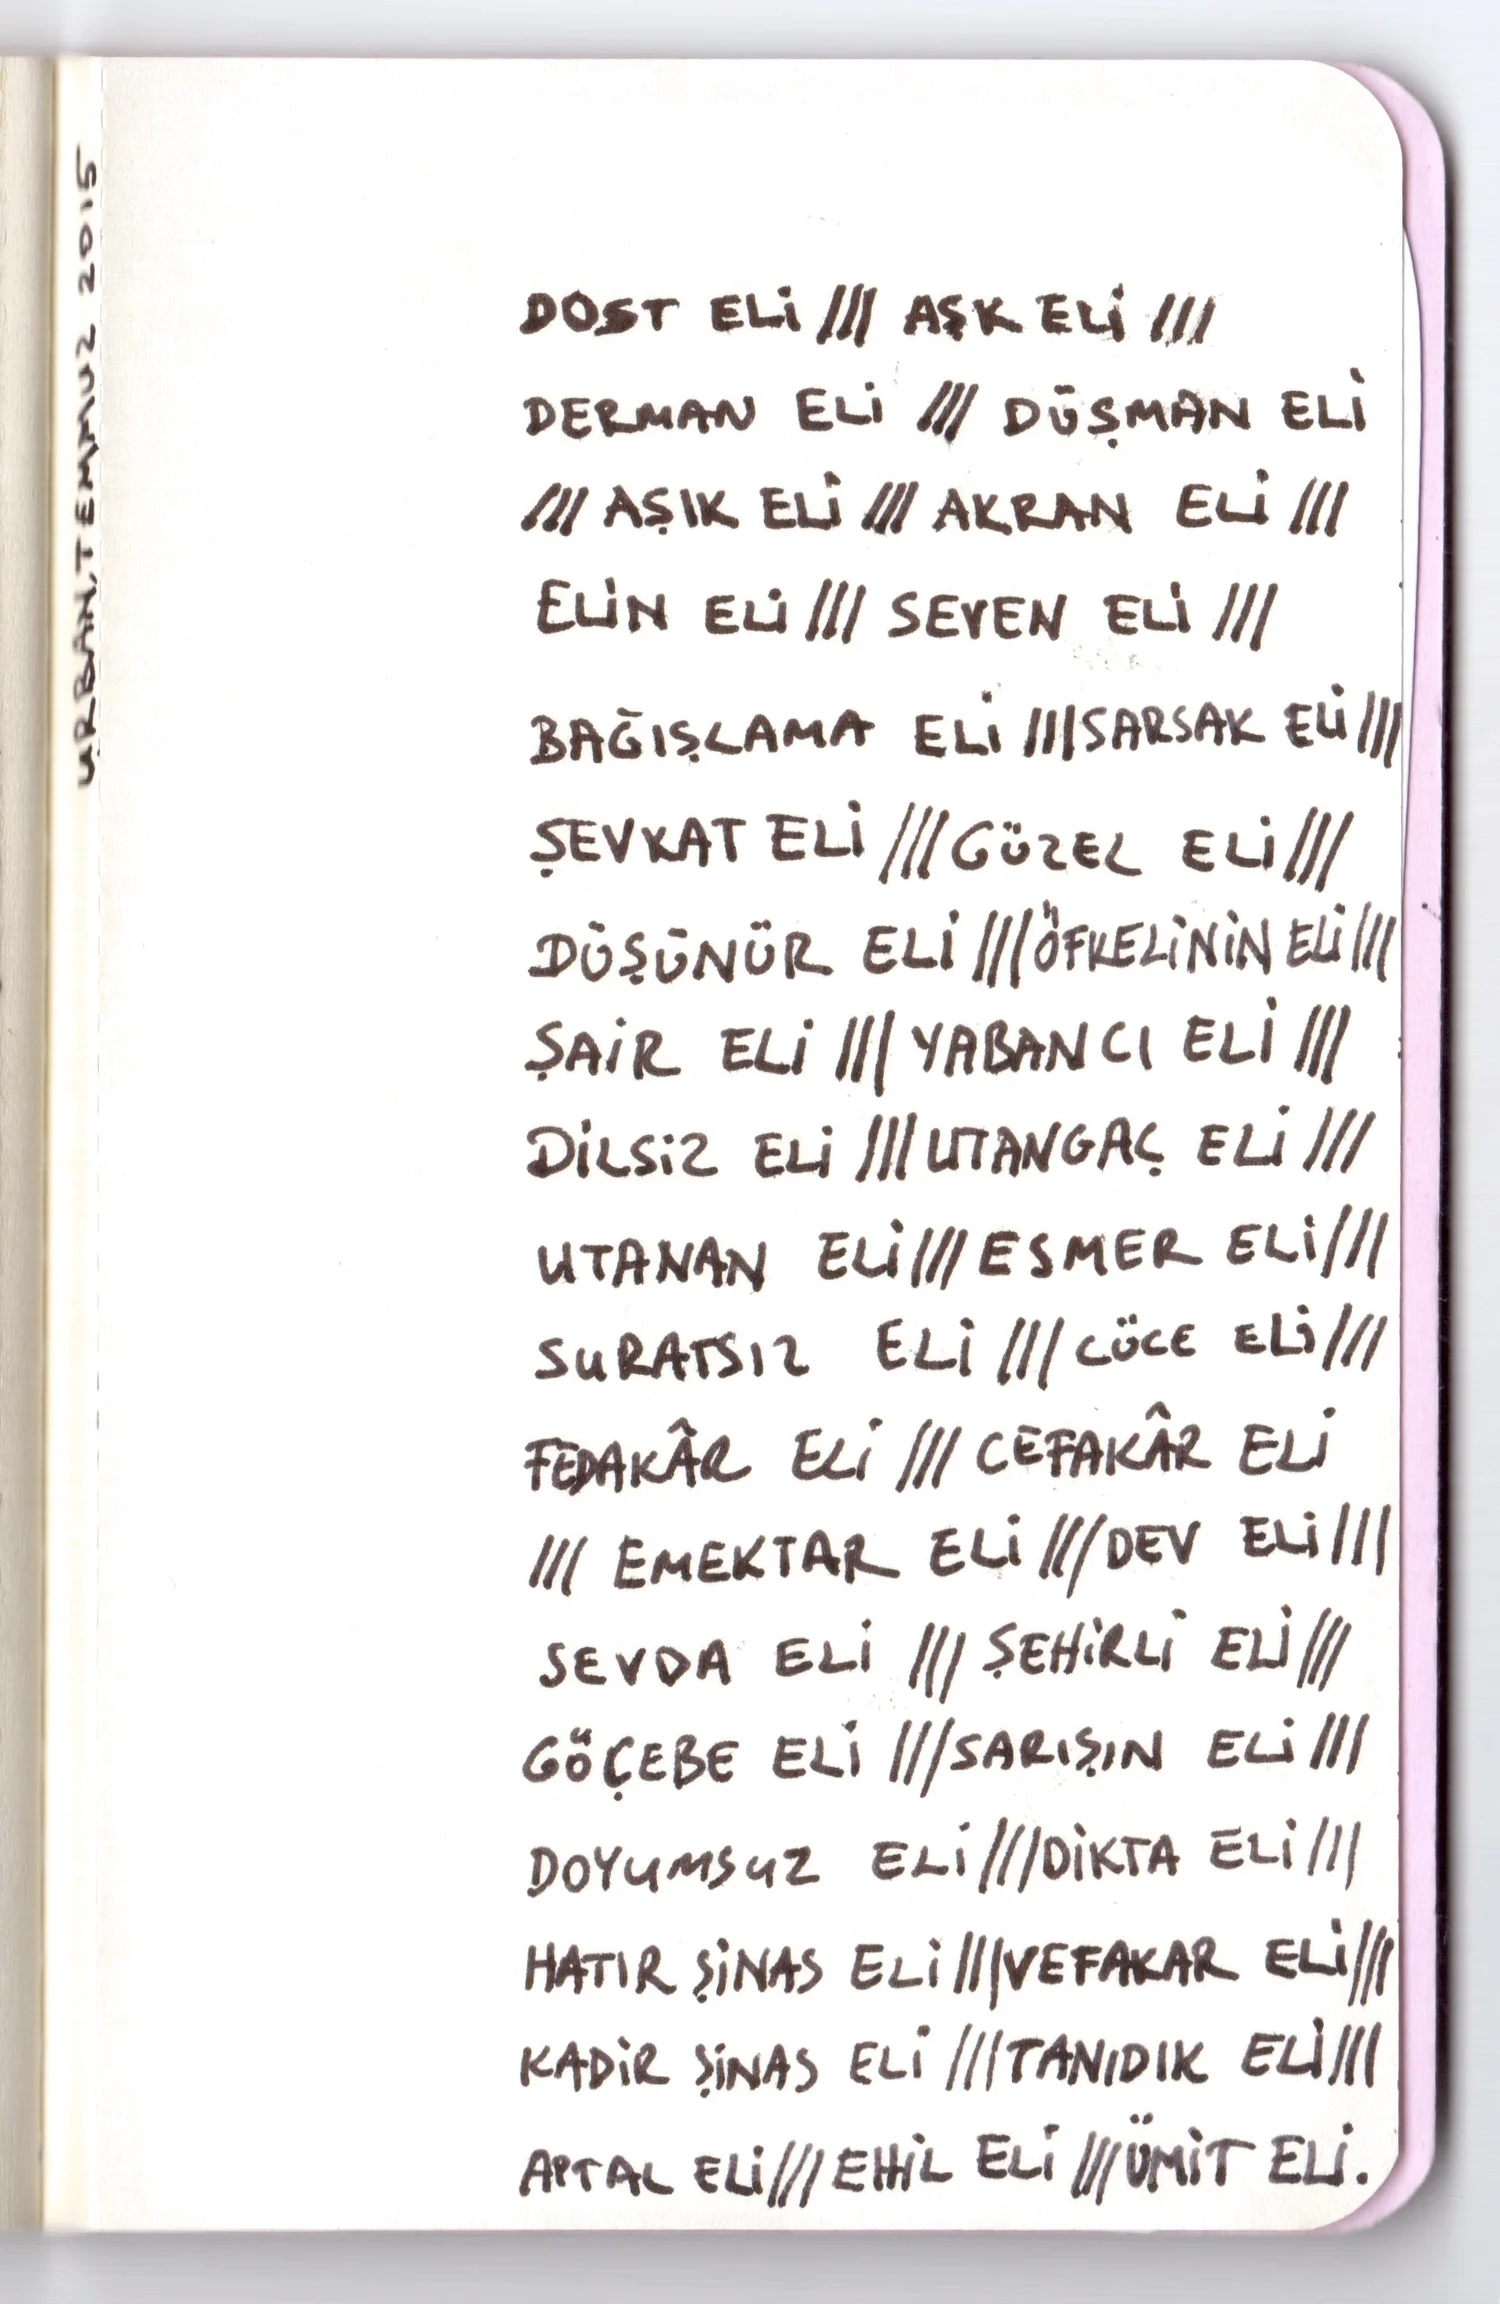 URBAN, TEMMUZ 2015
DOST ELİ /// AŞK ELİ ///
DERMAN ELİ /// DÜŞMAN ELİ
/// AŞIK ELİ /// AKRAN ELİ ///
ELİN ELİ /// SEVEN ELİ ///
BAĞIŞLAMA ELİ /// SARSAK ELİ ///
ŞEVKAT ELİ /// GÜZEL ELİ ///
DÜŞÜNÜR ELİ /// ÖFKELİNİN ELİ ///
ŞAİR ELİ /// YABANCI ELİ ///
DİLSİZ ELİ /// UTANGAÇ ELİ ///
UTANAN ELİ /// ESMER ELİ ///
SURATSIZ ELİ /// CÜCE ELİ ///
FEDAKÂR ELİ /// CEFAKÂR ELİ
/// EMEKTAR ELİ /// DEV ELİ ///
SEVDA ELİ /// ŞEHİRLİ ELİ ///
GÖÇEBE ELİ /// SARIŞIN ELİ ///
DOYUMSUZ ELİ /// DİKTA ELİ ///
HATIR ŞİNAS ELİ /// VEFAKAR ELİ ///
KADİR ŞİNAS ELİ /// TANIDIK ELİ ///
APTAL ELİ /// EHİL ELİ /// ÜMİT ELİ.